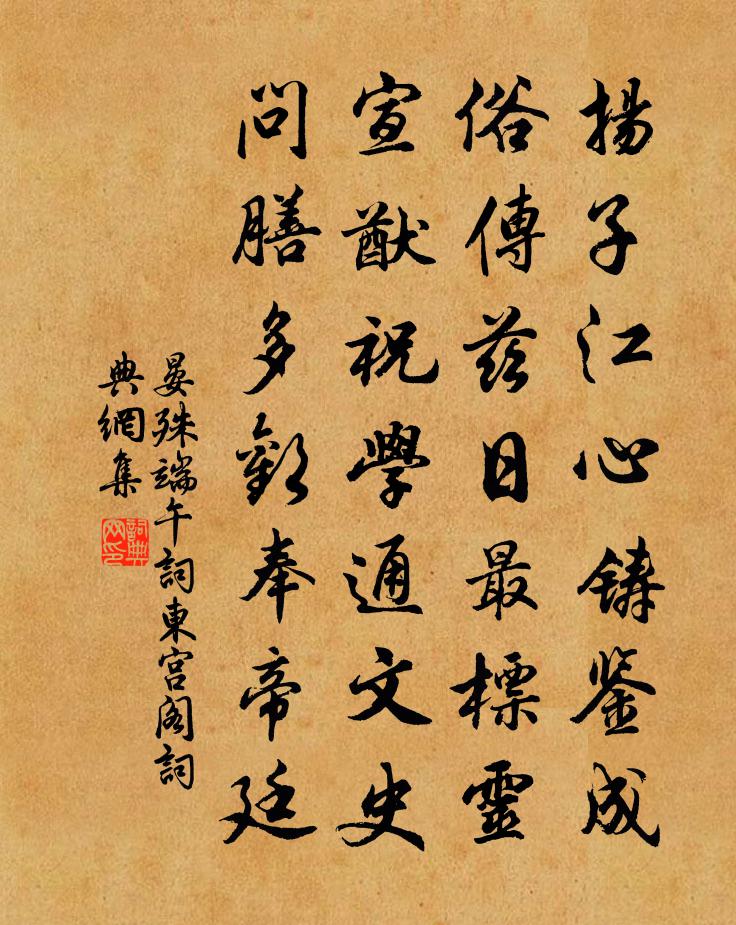 揚子江心鑄鑒成
俗傳茲日最標靈
宣猷祝學通文史
問膳多歡奉帝廷
晏殊端午詞東宮閣詞
典網集
詞典
网印